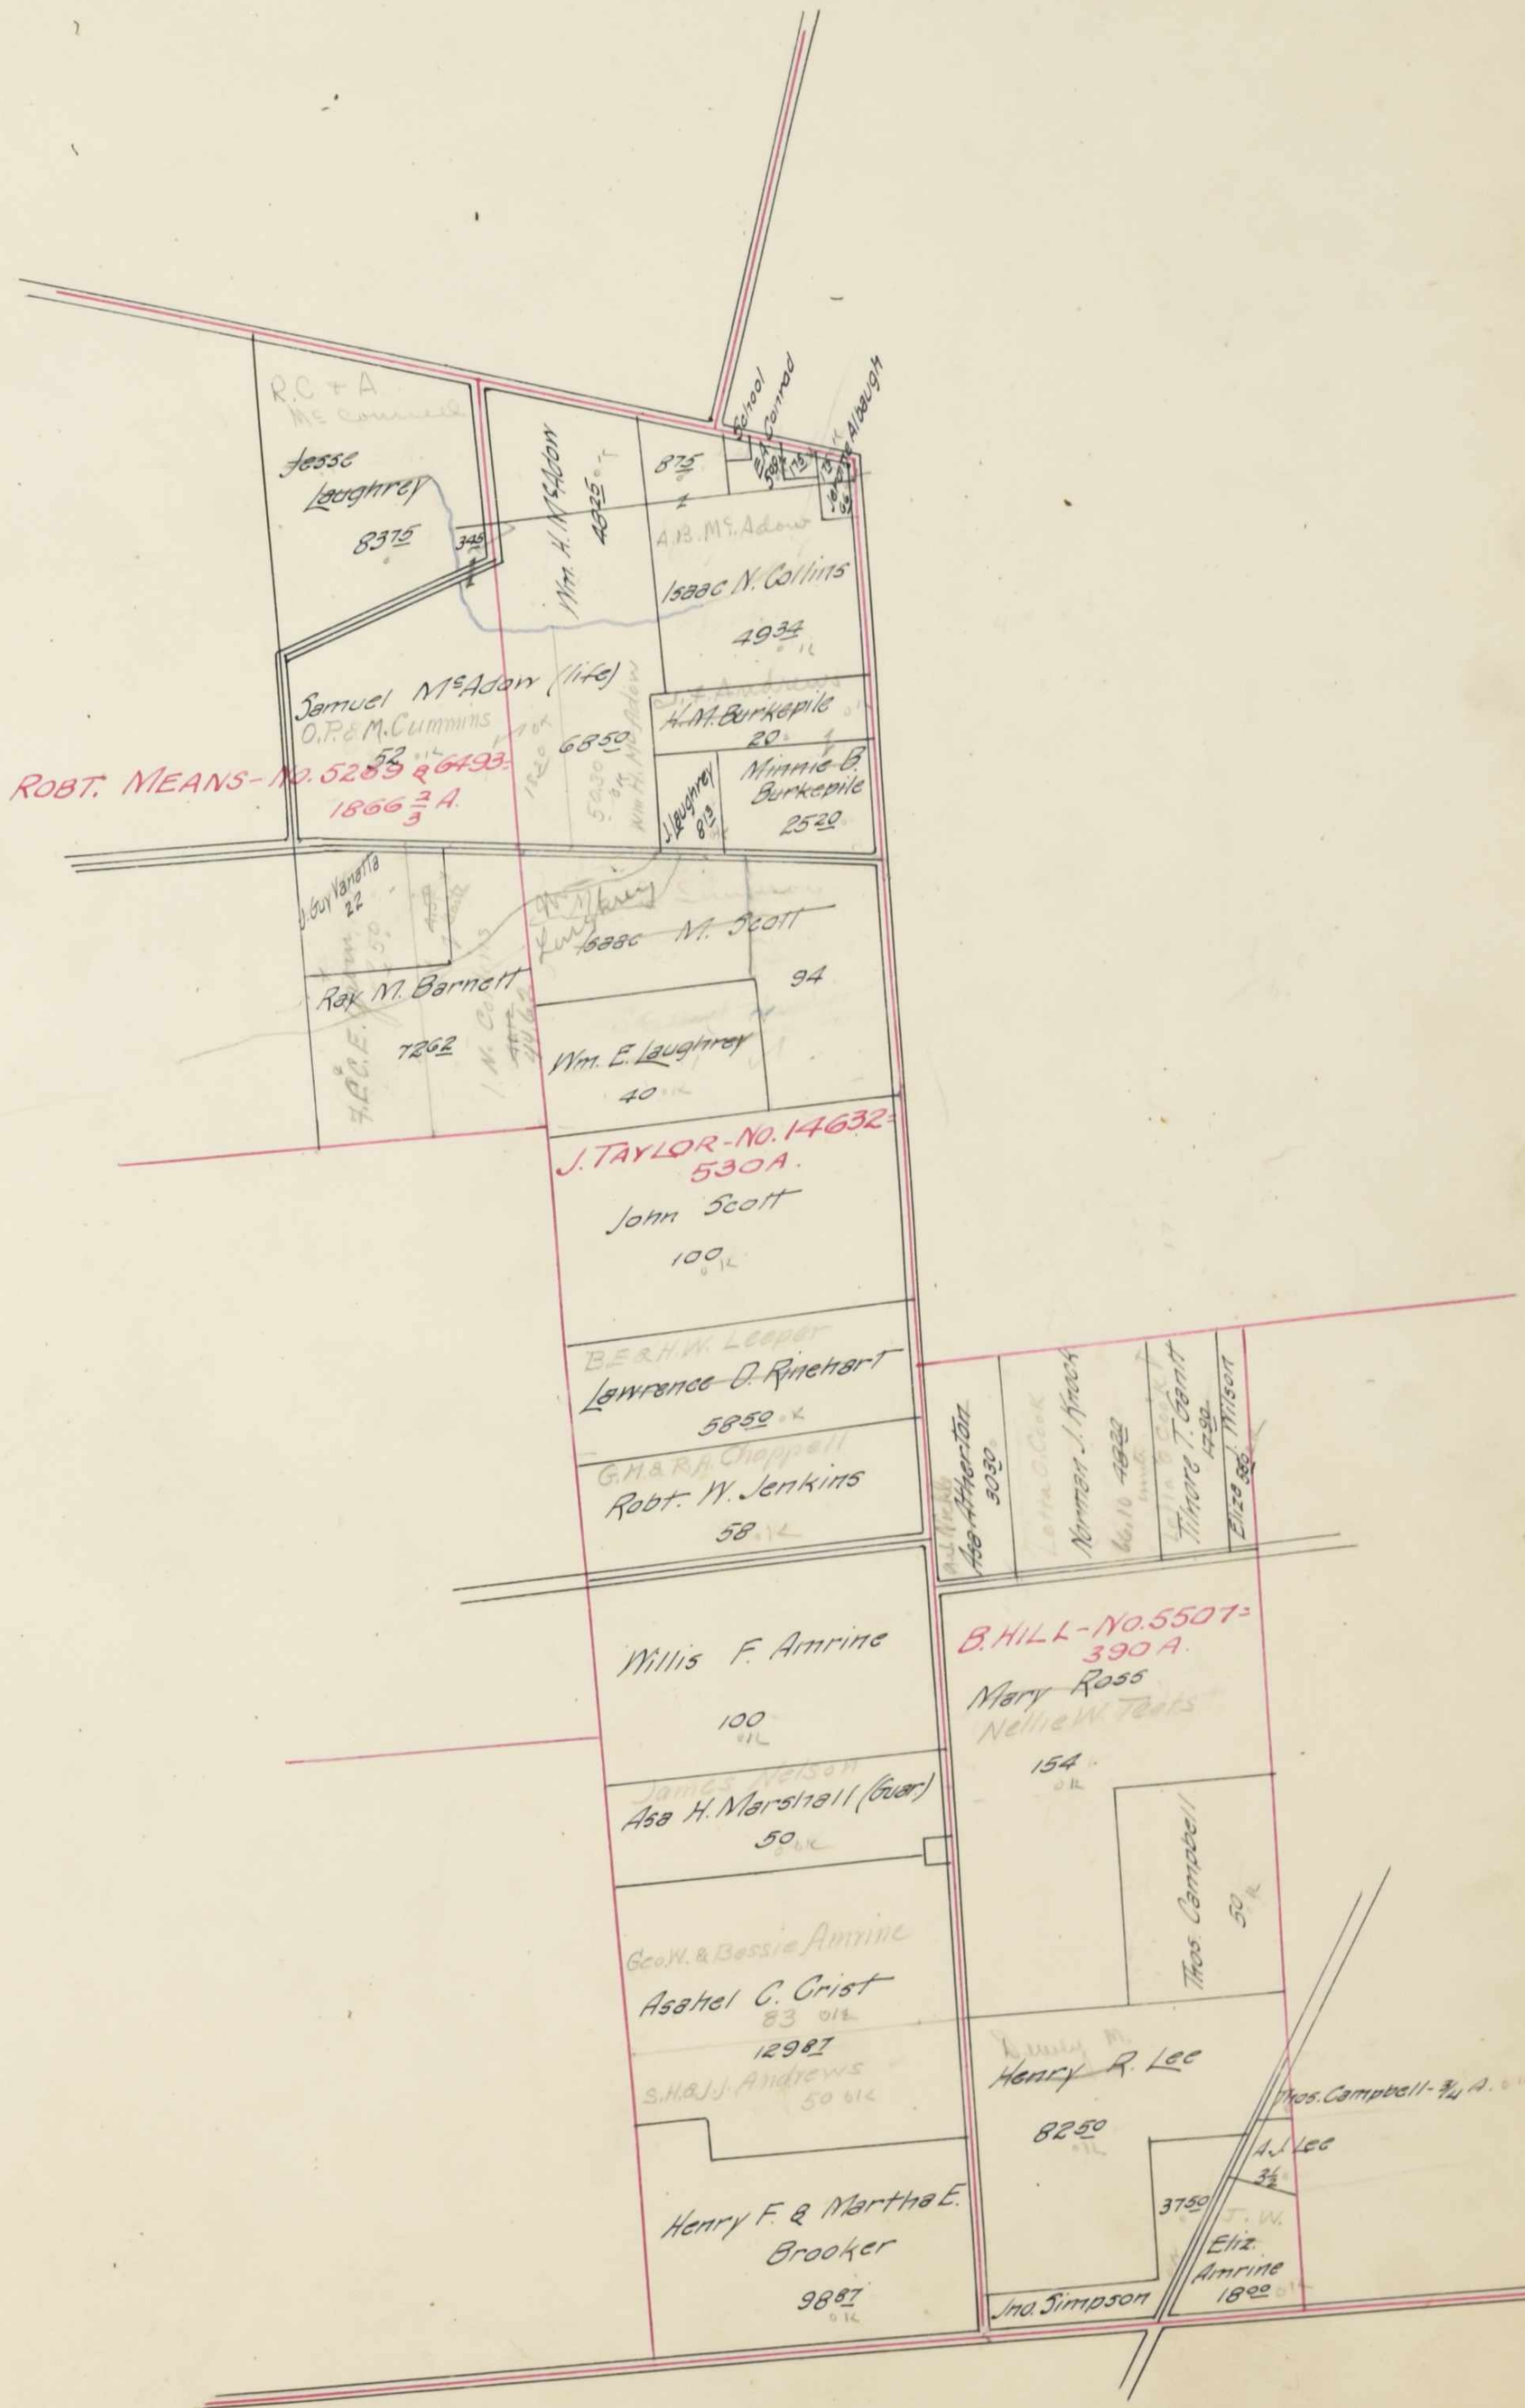 R.C & A
Mc Connell
Jesse
Laughrey
83 75
3 45
Wm. H. McAdow
48 25
8 75
School
Conrad
Albaugh
A.B. Mc Adow
Isaac N. Collins
49 34
ok
Samuel McAdow (life)
O.P. & M. Cummins
52 ok
68 50
50.30
ok
Wm H. McAdow
Andrews
H.M. Burkepile
20
J. Laughrey
8 13
Minnie B.
Burkepile
25 20
ROBT. MEANS - No. 5289 & 6493 =
1866 2/3 A.
J. Guy Vanatta
22
Ray M. Barnett
72 62
Laughrey
Isaac M. Scott
94
Wm. E. Laughrey
40 ok
J. TAYLOR - NO. 14632 =
530 A.
John Scott
100
ok
B E & H.W. Leeper
Lawrence D. Rinehart
58 50 ok
G.H. & R.A. Chappell
Robt. W. Jenkins
58 ok
Asa Atherton
30 30
Lotta O. Cook
Norman J. Knock
66.10 48 20
Tilmore T. Gantt
17 90
Eliza J. Wilson
Willis F. Amrine
100
ok
B. HILL - NO. 5507 =
390 A.
Mary Ross
Nellie W. Teats
154
ok
James Nelson
Asa H. Marshall (Guar)
50 ok
Thos. Campbell
50 ok
Geo. W. & Bessie Amrine
Asahel C. Crist
83 ok
129 87
S.H. & J.J. Andrews
50 ok
Henry R. Lee
82 50
ok
Thos. Campbell - 3/4 A.
A.J. Lee
3 1/2
37 50
J. W.
Eliz.
Amrine
18 00 ok
Henry F. & Martha E.
Brooker
98 87
ok
Jno. Simpson